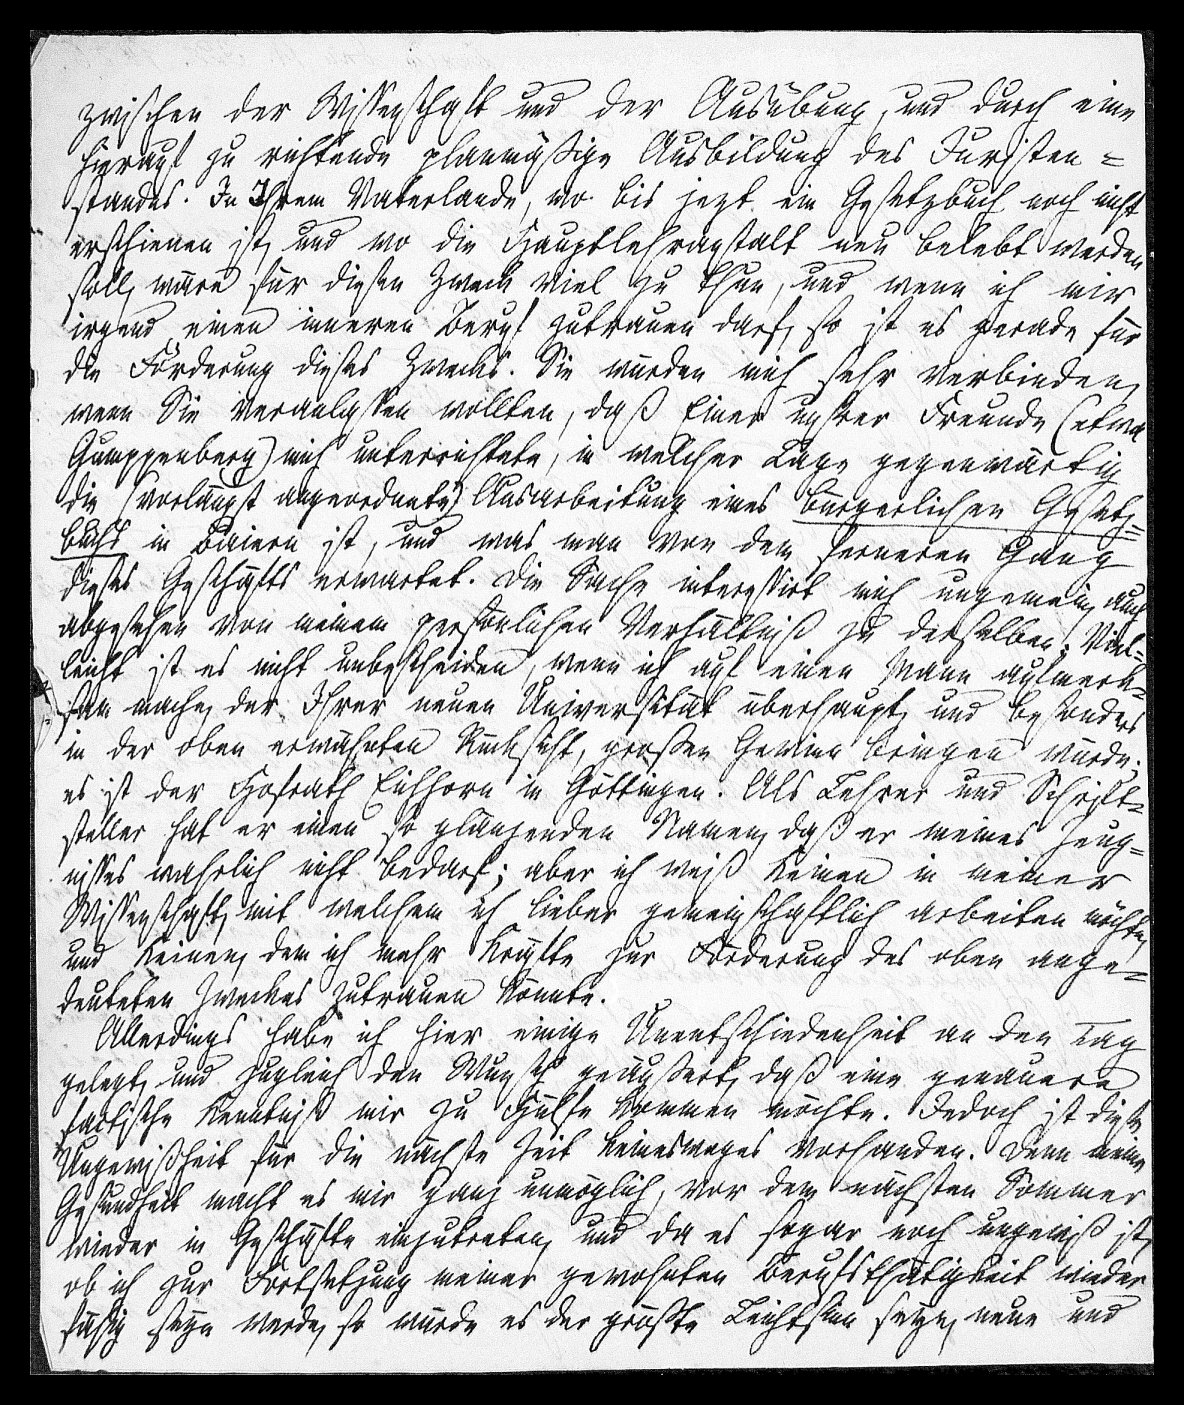 zwischen der Wissenschaft und der Ausübung, und durch eine
hierauf zu richtende planmäßige Ausbildung des Juristen=
standes. In Ihrem Vaterlande, wo bis jezt ein Gesetzbuch noch nicht
erschienen ist, und wo die Hauptlehranstalt neu belebt werden
soll, wäre für diesen Zweck viel zu thun, und wenn ich mir
irgend einen inneren Beruf zutrauen darf, so ist es gerade für
die Förderung dieses Zwecks. Sie würden mich sehr verbinden,
wenn Sie veranlassen wollten, daß Einer unsrer Freunde (etwa
Gumppenberg) mich unterrichtete, in welcher Lage gegenwärtig
die (vorlängst angeordnete) Ausarbeitung eines bürgerlichen Gesetz=
buchs in Baiern ist, und was man von dem ferneren Gang
dieses Geschäfts erwartet. Die Sache interessirt mich ungemein, auch
abgesehen von meinem persönlichen Verhältniß zu derselben. Viel=
leicht ist es nicht unbescheiden, wenn ich auf einen Mann aufmerk=
sam mache, der Ihrer neuen Universität überhaupt, und besonders
in der oben erwähnten Rücksicht, großen Gewinn bringen würde;
es ist der Hofrath Eichhorn in Göttingen. Als Lehrer und Schrift=
steller hat er einen so glänzenden Namen, daß er meines Zeug=
nisses wahrlich nicht bedarf; aber ich weiß keinen in meiner
Wissenschaft, mit welchem ich lieber gemeinschaftlich arbeiten möchte,
und keinen, dem ich mehr Kräfte zur Förderung des oben ange=
deuteten Zweckes zutrauen könnte.
Allerdings habe ich hier einige Unentschiedenheit an den Tag
gelegt, und zugleich den Wunsch geäußert, daß eine genauere
factische Kenntniß mir zu Hülfe kommen möchte. Jedoch ist diese
Ungewißheit für die nächste Zeit keinesweges vorhanden. Denn meine
Gesundheit macht es mir ganz unmöglich, vor dem nächsten Sommer
wieder in Geschäfte einzutreten, und da es sogar noch ungewiß ist,
ob ich zur Fortsetzung meiner gewohnten Berufsthätigkeit wieder
fähig seyn werde, so würde es der größte Leichtsinn seyn, neue und